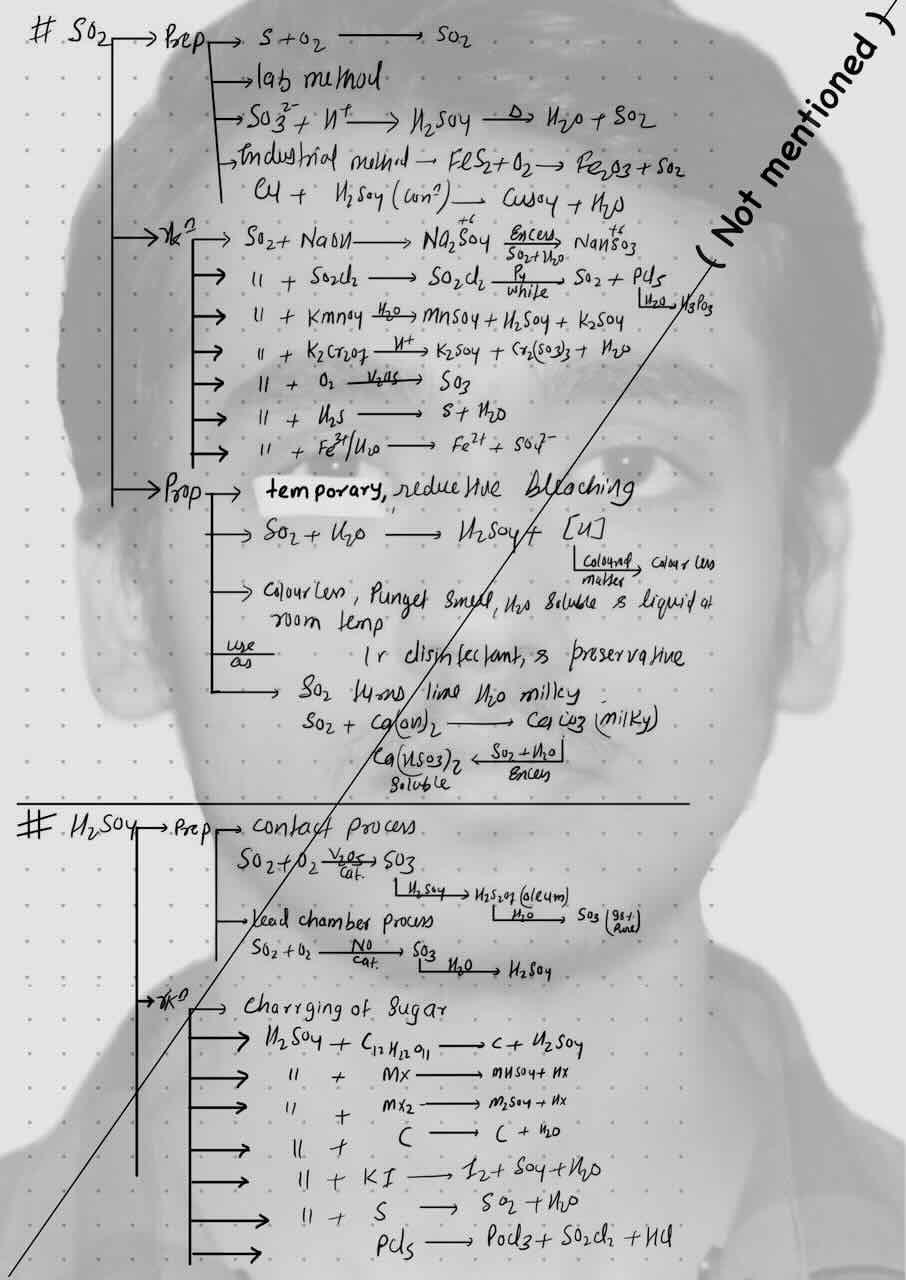 # SO2 → Prep → S + O2 → SO2
→ lab method
→ SO3^2- + H+ → H2SO4 —Δ→ H2O + SO2
→ Industrial method → FeS2 + O2 → Fe2O3 + SO2
Cu + H2SO4 (conⁿ) → CuSO4 + H2O
( Not mentioned )
→ rxⁿ → SO2 + NaOH → Na2SO4 (+6) —Excess SO2+H2O→ NaHSO3 (+6)
→ " + SO2Cl2 → SO2Cl2 —Py white→ SO2 + PCl5
H2O → H3PO3
→ " + KMnO4 —H2O→ MnSO4 + H2SO4 + K2SO4
→ " + K2Cr2O7 —H+→ K2SO4 + Cr2(SO3)3 + H2O
→ " + O2 —V2O5→ SO3
→ " + H2S → S + H2O
→ " + Fe3+/H2O → Fe2+ + SO4^2-
→ Prop → temporary, reductive bleaching
→ SO2 + H2O → H2SO4 + [H]
Coloured matter → colour less
→ Colourless, Punget smell, H2O soluble & liquid at
room temp
use as Ir disinfectant, & preservative
→ SO2 turns lime H2O milky
SO2 + Ca(OH)2 → (milky)
Ca(HSO3)2 soluble ← SO2 + H2O Excess
# H2SO4 → Prep → contact process
SO2 + O2 —V2O5 cat.→ SO3
H2SO4 → H2S2O7 (oleum)
H2O → SO3 (98% pure)
→ Lead chamber process
SO2 + O2 —NO cat.→ SO3
H2O → H2SO4
→ rxⁿ → Charrging of sugar
→ H2SO4 + C12H22O11 → C + H2SO4
→ " + MX → MHSO4 + HX
→ " + MX2 → M2SO4 + HX
→ " + C → C + H2O
→ " + KI → I2 + SO4 + H2O
→ " + S → SO2 + H2O
→ PCl5 → POCl3 + SO2Cl2 + HCl